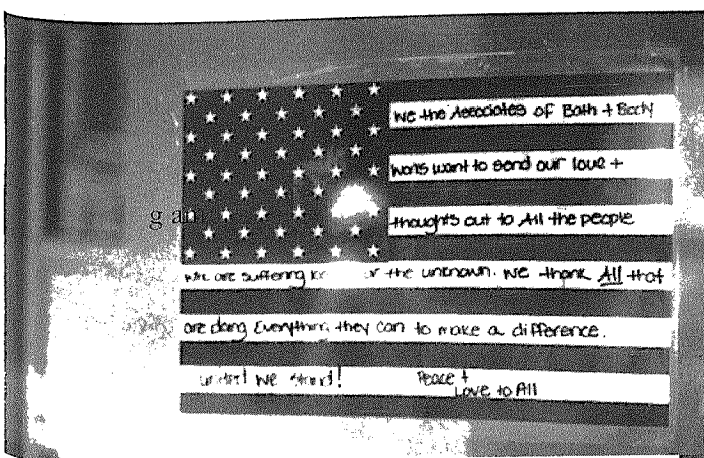 We the Associates of Bath + Body
Works want to send our love +
thoughts out to All the people
who are suffering or the unknown. We thank All that
are doing Everything they can to make a difference.
united we stand!
Peace +
Love to All